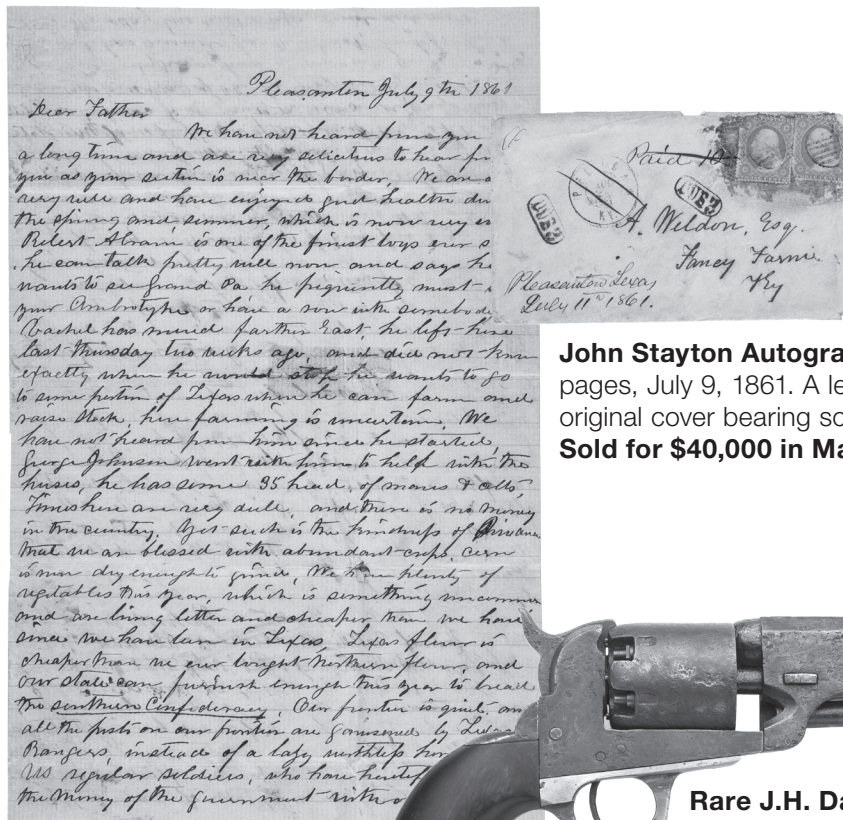 Pleasanton July 9th 1861
Dear Father
We have not heard from you
a long time and are very solicitous to hear
you as your section is near the border, We are
very well and have enjoyed good health
the spring and summer, which is now very
Robert Abram is one of the finest boys ever
he can talk pretty well now and says he
wants to see Grand Pa he frequently must
your Ambrotype or have a row with
Vachel has moved farther East, he left here
last Thursday two weeks ago, and did not know
exactly when he would stop he wants to go
to some portion of Texas where he can farm and
raise stock, here farming is uncertain, We
have not heard from him since he started,
George Johnson went with him to help with the
horses, he has some 35 head, of mares & colts,
Times here are very dull, and there is no money
in the country, Yet such is the kindness of
that we are blessed with abundant crops, corn
is now dry enough to grind, We have plenty of
vegetables this year, which is something uncommon
and are living better and cheaper than we have
since we have been in Texas, Texas flour is
cheaper than we ever bought Northern flour, and
our state can furnish enough this year to bread
the southern Confederacy, Our frontier is quiet, and
all the posts on our frontier are garrisoned by Texas
Rangers, instead of a lazy worthless
US regular soldiers, who have
the money of the government
Paid
DUE 3
DUE 3
A. Weldon, Esq.
Fancy Farm
Ky
Pleasanton Texas
July 11th 1861.
John Stayton Autogra
pages, July 9, 1861. A le
original cover bearing so
Sold for $40,000 in Ma
Rare J.H. Da